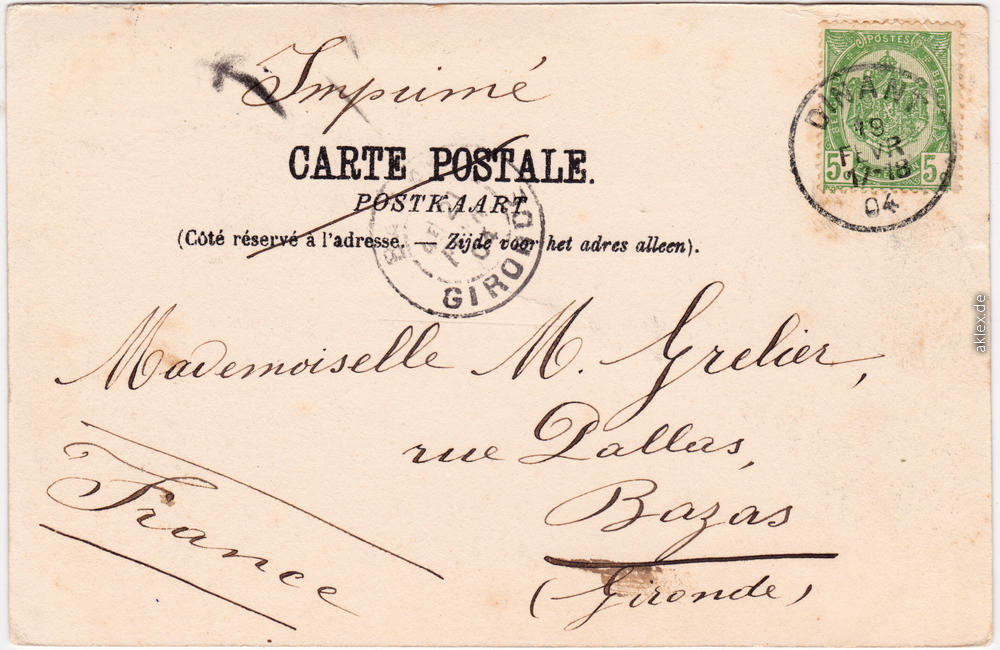 Imprimé
CARTE POSTALE.
POSTKAART
(Côté réservé à l'adresse. — Zijde voor het adres alleen).
POSTES
5 5
DINANT
19
FEVR
17-18
04
GIRONDE
04
Mademoiselle M. Grelier,
rue Pallas,
Bazas
(Gironde)
France
aklex.de